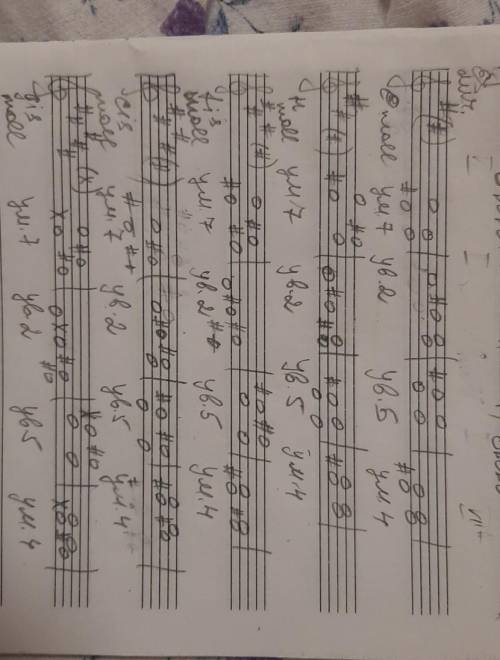 e moll ум.7 ув.2 ув.5 ум.4
H moll ум.7 ув.2 ув.5 ум.4
fis
moll ум.7 ув.2 ув.5 ум.4
cis
moll ум.7 ув.2 ув.5 ум.4
gis
moll ум.7 ув.2 ув.5 ум.4